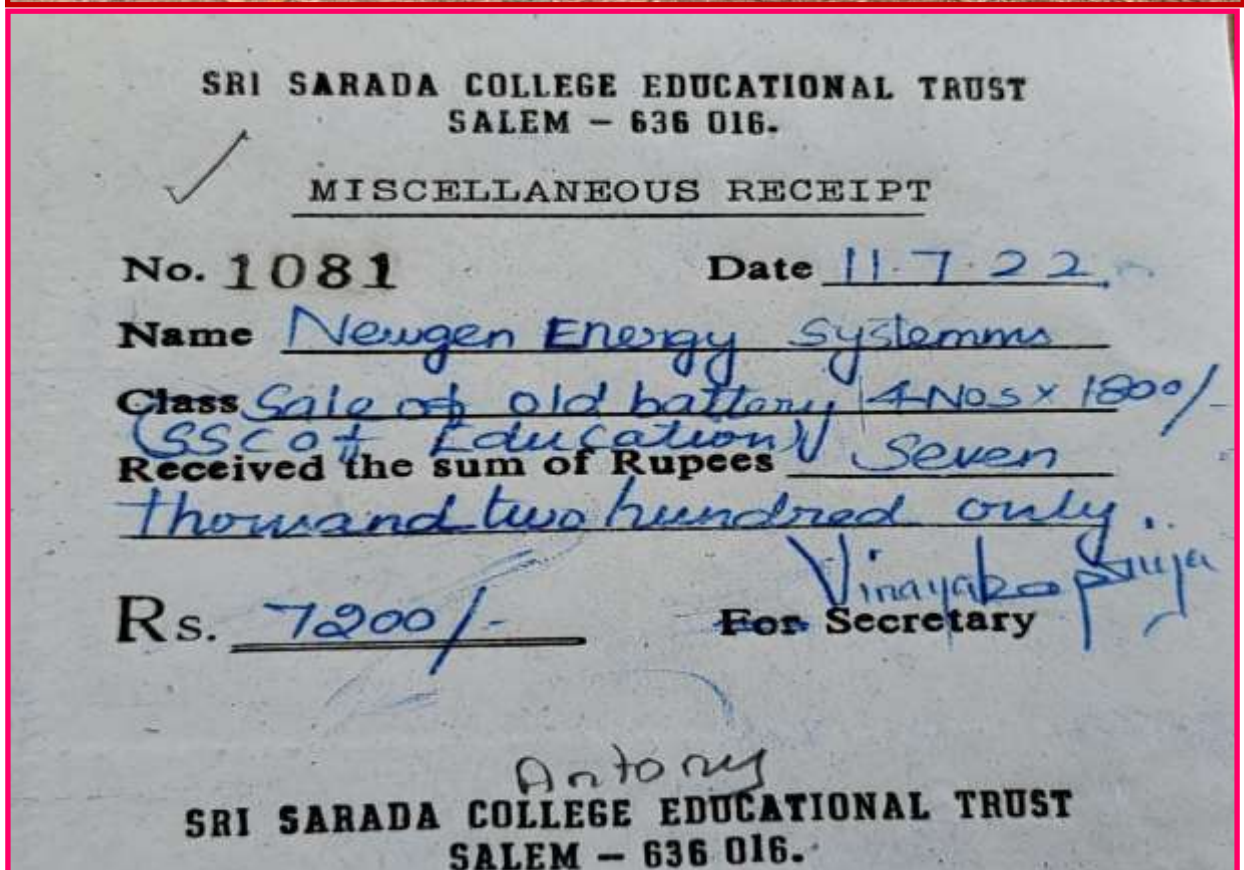 SRI SARADA COLLEGE EDUCATIONAL TRUST
SALEM – 636 016.
MISCELLANEOUS RECEIPT
No. 1081 Date 11.7.22.
Name Newgen Energy Systemms
Class Sale of old battery 4 Nos x 1800/-
(SSC of Education)
Received the sum of Rupees Seven
thousand two hundred only.
Vinayaka
Rs. 7200/- For Secretary
Antony
SRI SARADA COLLEGE EDUCATIONAL TRUST
SALEM – 636 016.